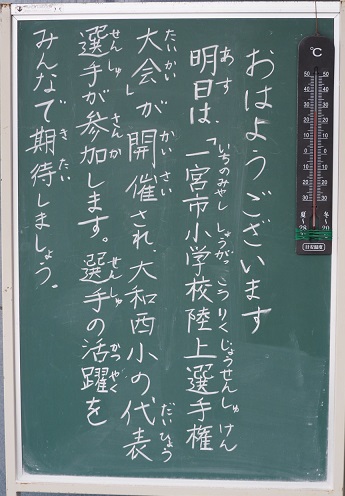 おはようございます
明日は、「一宮市小学校陸上選手権
大会」が開催され大和西小の代表
選手が参加します。選手の活躍を
みんなで期待しましょう。
あす いちのみやし しょうがっこうりくじょうせんしゅけん
たいかい かいさい だいひょう
せんしゅ さんか せんしゅ かつやく
きたい
℃
50 50
40 40
30 30
20 20
10 10
0 0
10 10
20 20
30 30
夏 冬
28 20